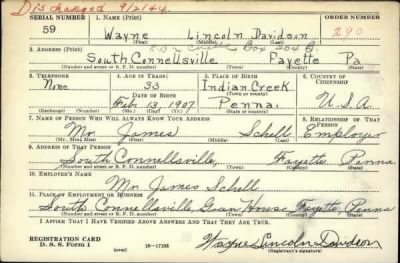 Discharged 9/2/44.
SERIAL NUMBER 1. NAME (Print) ORDER NUMBER
59 Wayne Lincoln Davidson 290
(First) (Middle) (Last)
2. ADDRESS (Print)
South Connellsville Fayette Pa
(Number and street or R. F. D. number) (Town) (County) (State)
3. TELEPHONE 4. AGE IN YEARS 5. PLACE OF BIRTH 6. COUNTRY OF CITIZENSHIP
None 33 Indian Creek
DATE OF BIRTH (Town or county)
Feb 13 1907 Penna. U.S.A.
(Exchange) (Number) (Mo.) (Day) (Yr.) (State or country)
7. NAME OF PERSON WHO WILL ALWAYS KNOW YOUR ADDRESS 8. RELATIONSHIP OF THAT PERSON
Mr. James Schell Employer
(Mr., Mrs., Miss) (First) (Middle) (Last)
9. ADDRESS OF THAT PERSON
South Connellsville, Fayette, Penna
(Number and street or R. F. D. number) (Town) (County) (State)
10. EMPLOYER'S NAME
Mr. James Schell
11. PLACE OF EMPLOYMENT OR BUSINESS
South Connellsville, House Fayette, Penna
(Number and street or R. F. D. number) (Town) (County) (State)
I AFFIRM THAT I HAVE VERIFIED ABOVE ANSWERS AND THAT THEY ARE TRUE.
REGISTRATION CARD
D. S. S. Form 1 (over) 16—17105 Wayne Lincoln Davidson
(Registrant's signature)